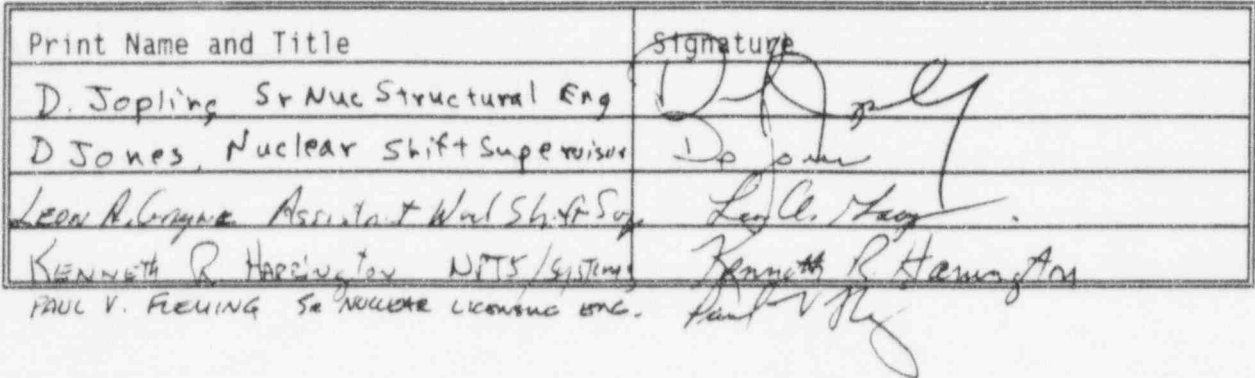 Print Name and Title Signature
D. Jopling Sr Nuc Structural Eng
D Jones, Nuclear Shift Supervisor D Jones
LEON A. Assistant Nucl Shift Sup.
KENNETH R HARRINGTON NPTS/Systems Kenneth R Harrington
PAUL V. FLEMING SR NUCLEAR LICENSING ENG. Paul V